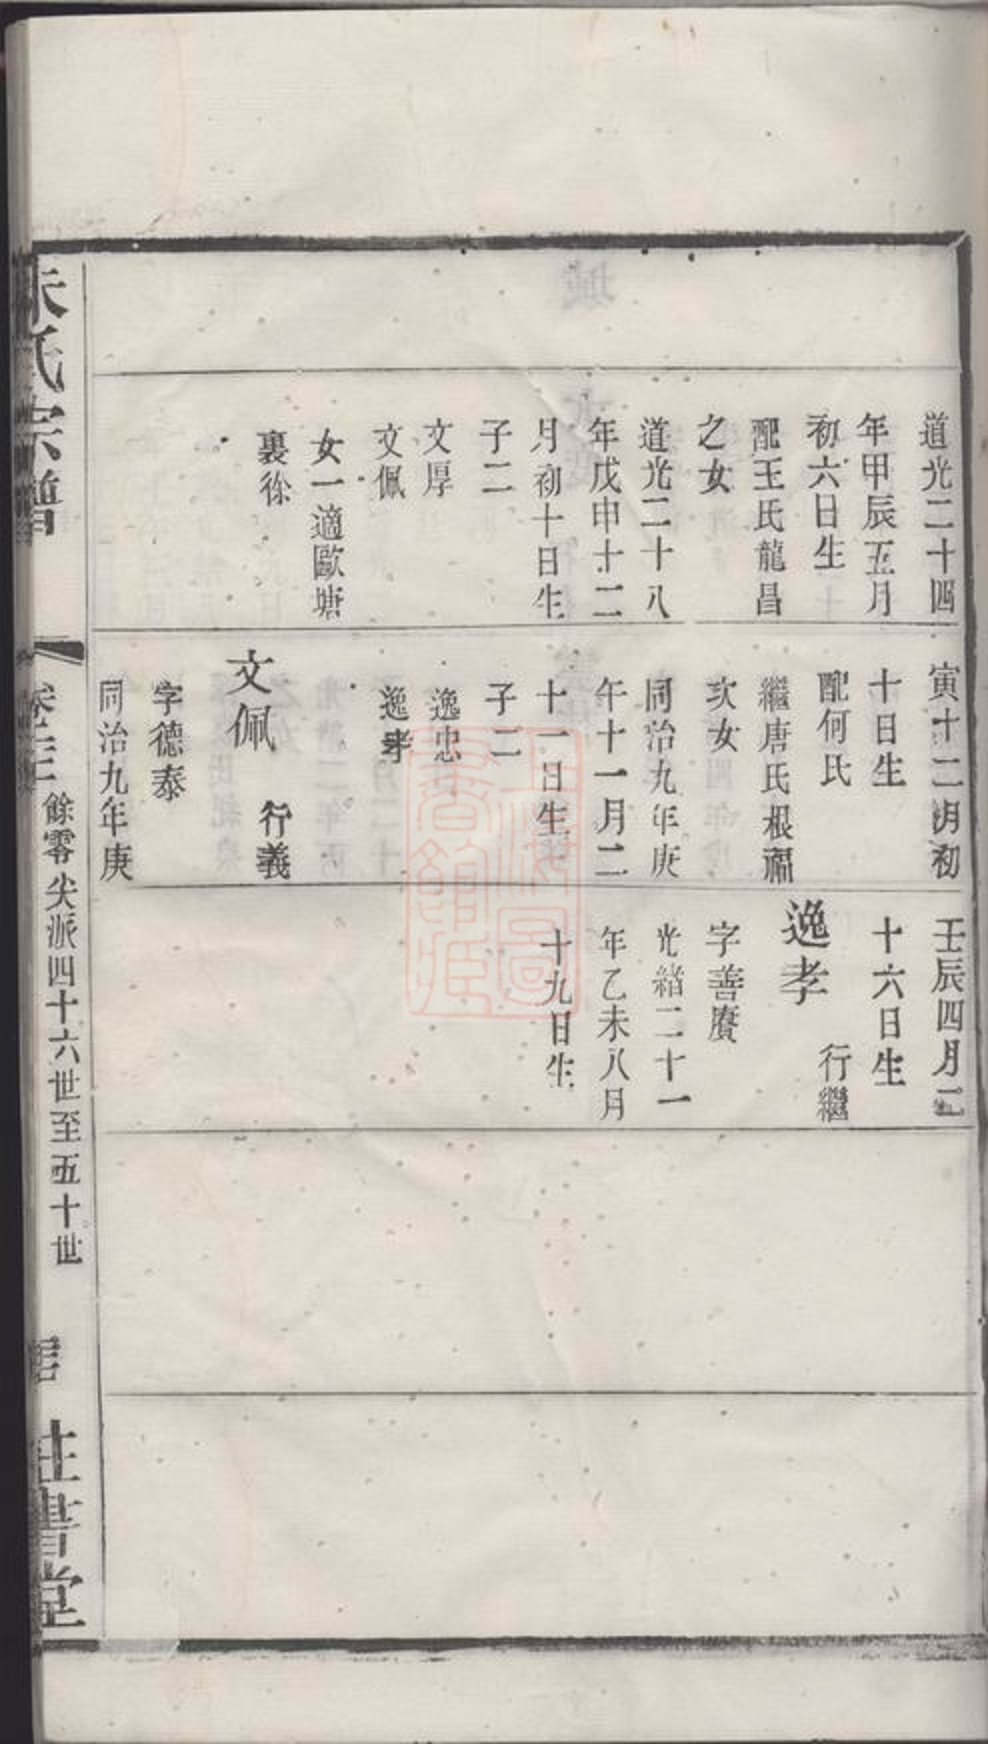 道光二十四
年甲辰五月
初六日生
配王氏龍昌
之女
道光二十八
年戊申十二
月初十日生
子二
文厚
文佩
女一適歐塘
裏徐
寅十二月初
十日生
配何氏
繼唐氏根福
次女
同治九年庚
午十一月二
十一日生
子二
逸忠
逸孝
文佩 行義
字德泰
同治九年庚
壬辰四月二
十六日生
逸孝 行繼
字善賡
光緒二十一
年乙未八月
十九日生
朱氏宗譜
餘零尖派四十六世至五十世
書堂